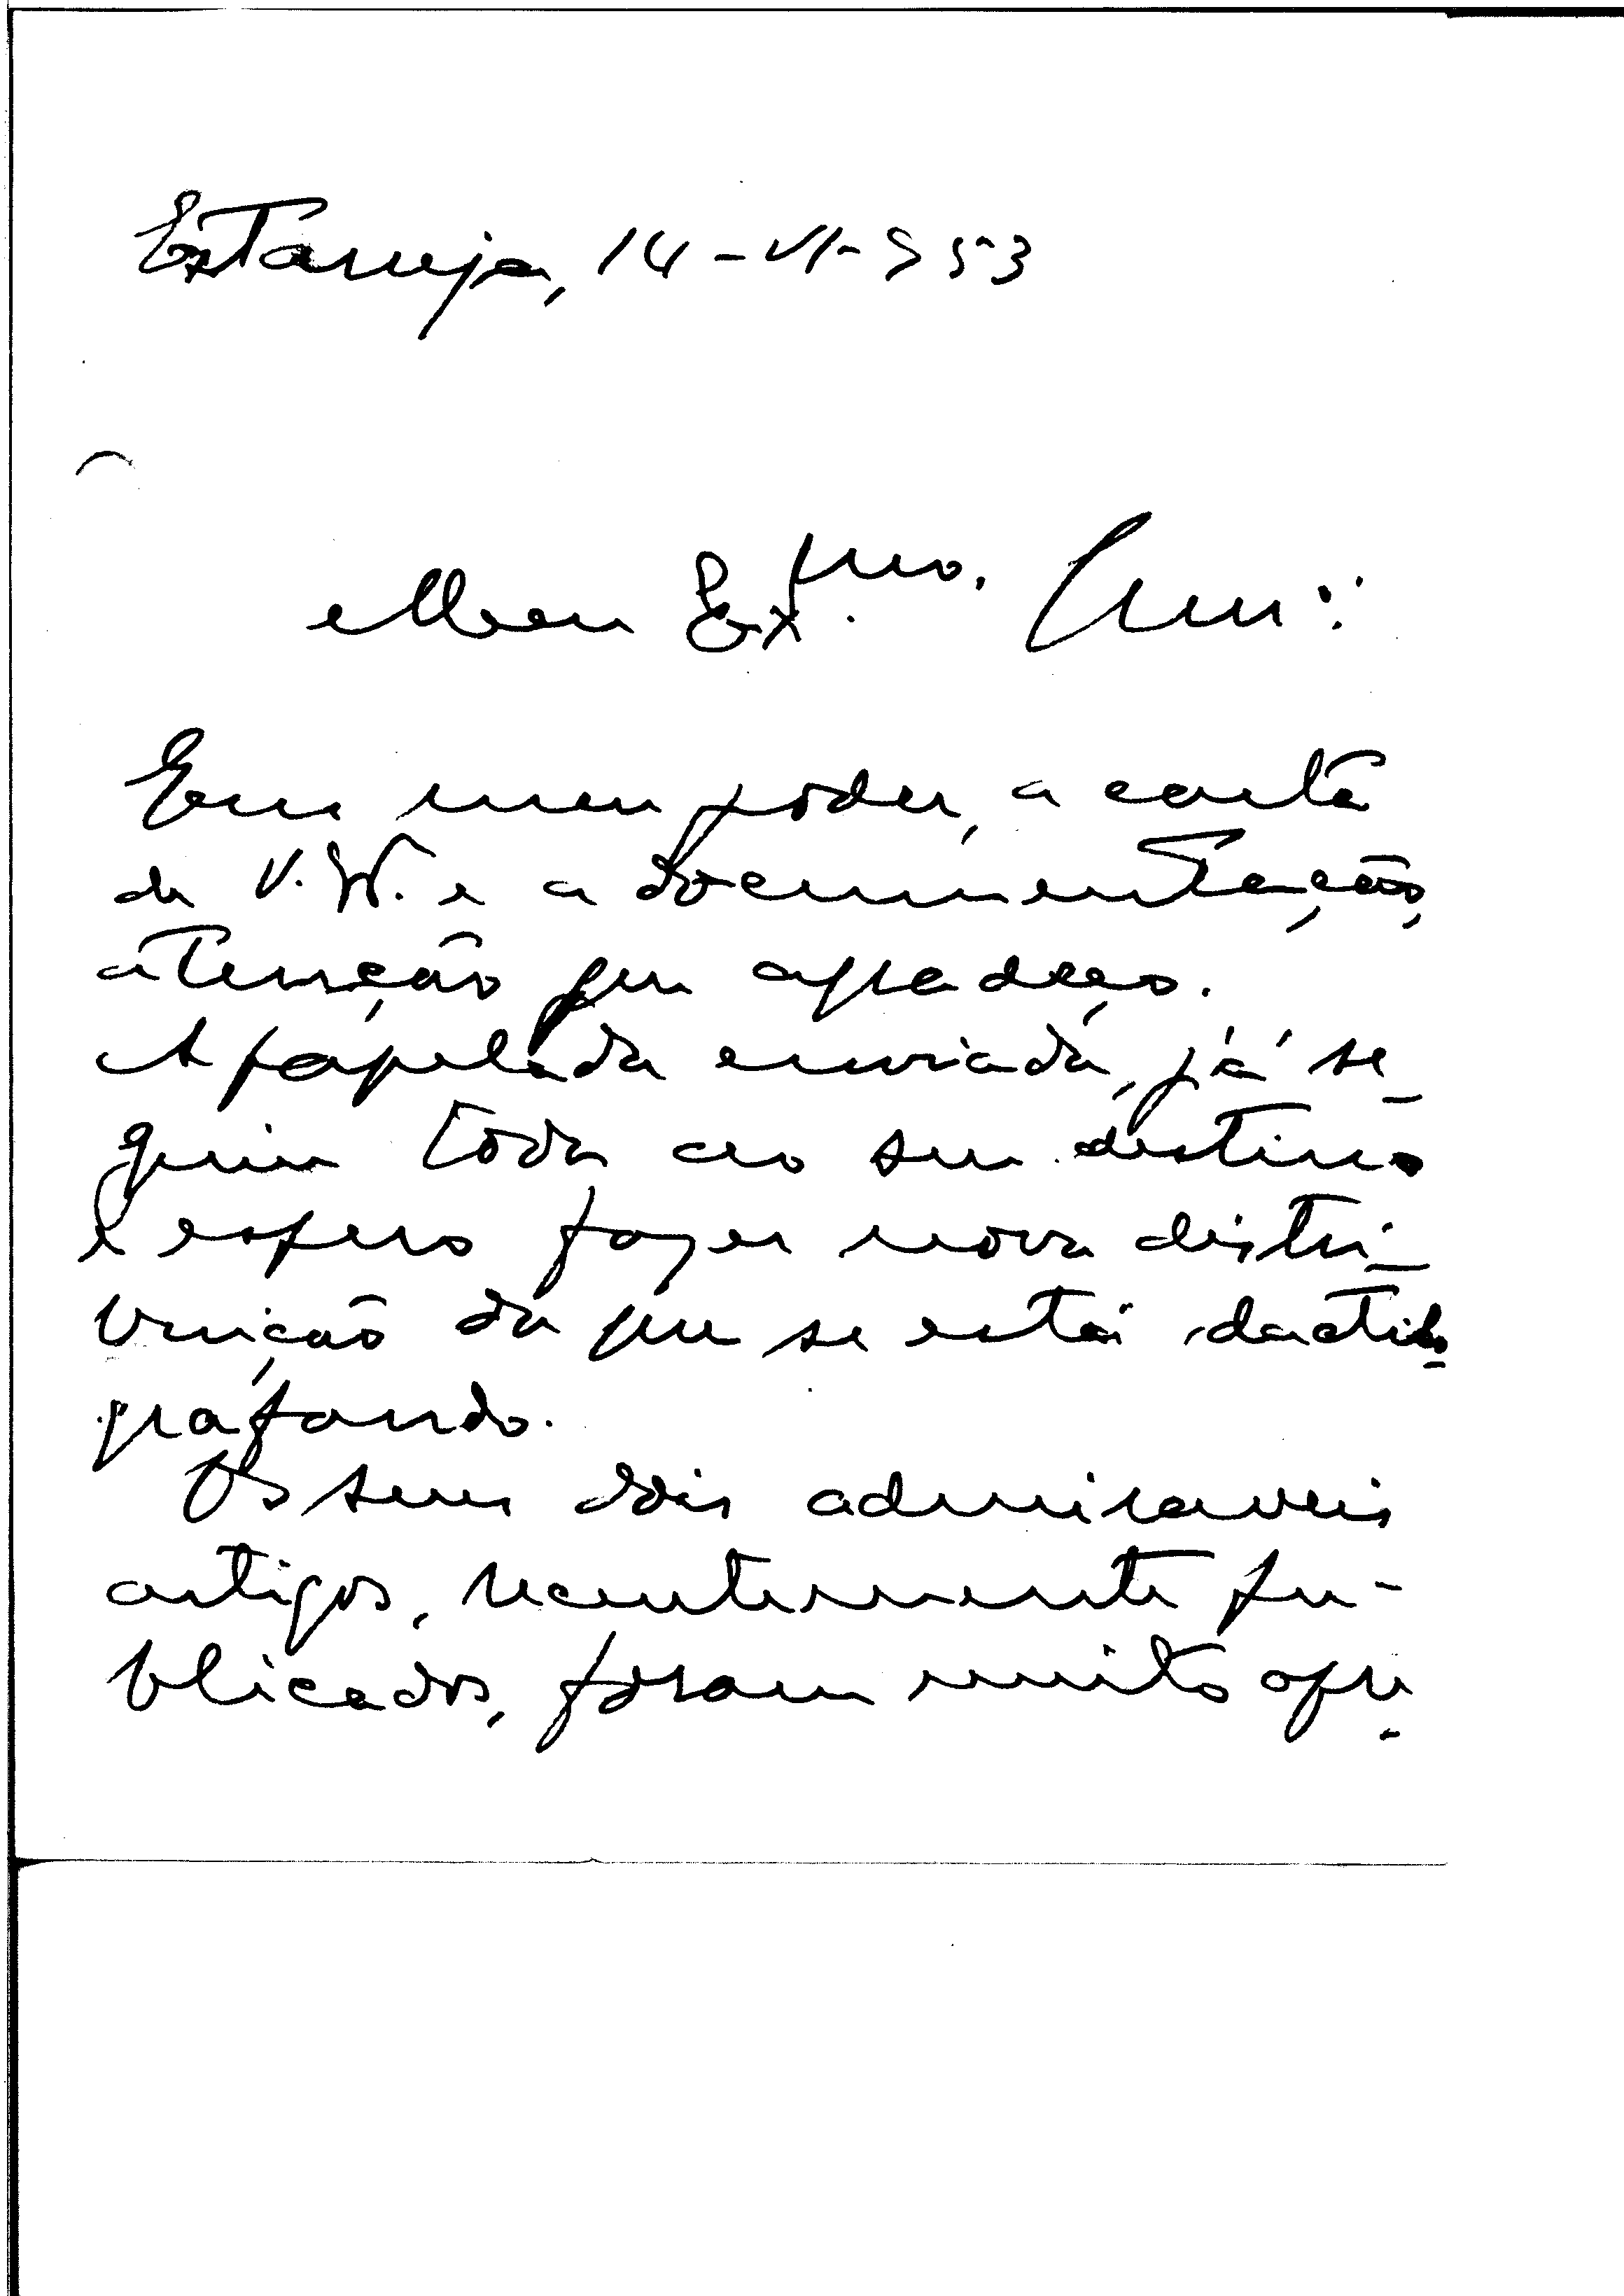 Estarreja, 14-VI-953
Meu Ex.mo Am.:
Em meu poder, a carta
de V. e a documentação,
atenção que agradeço.
A papelada enviada, já se-
guiu toda ao seu destino
e espero fazer nova distri-
buição da que se está dactilo-
grafando.
Os seus dois admiraveis
artigos, recentemente pu-
blicados, foram muito apre-